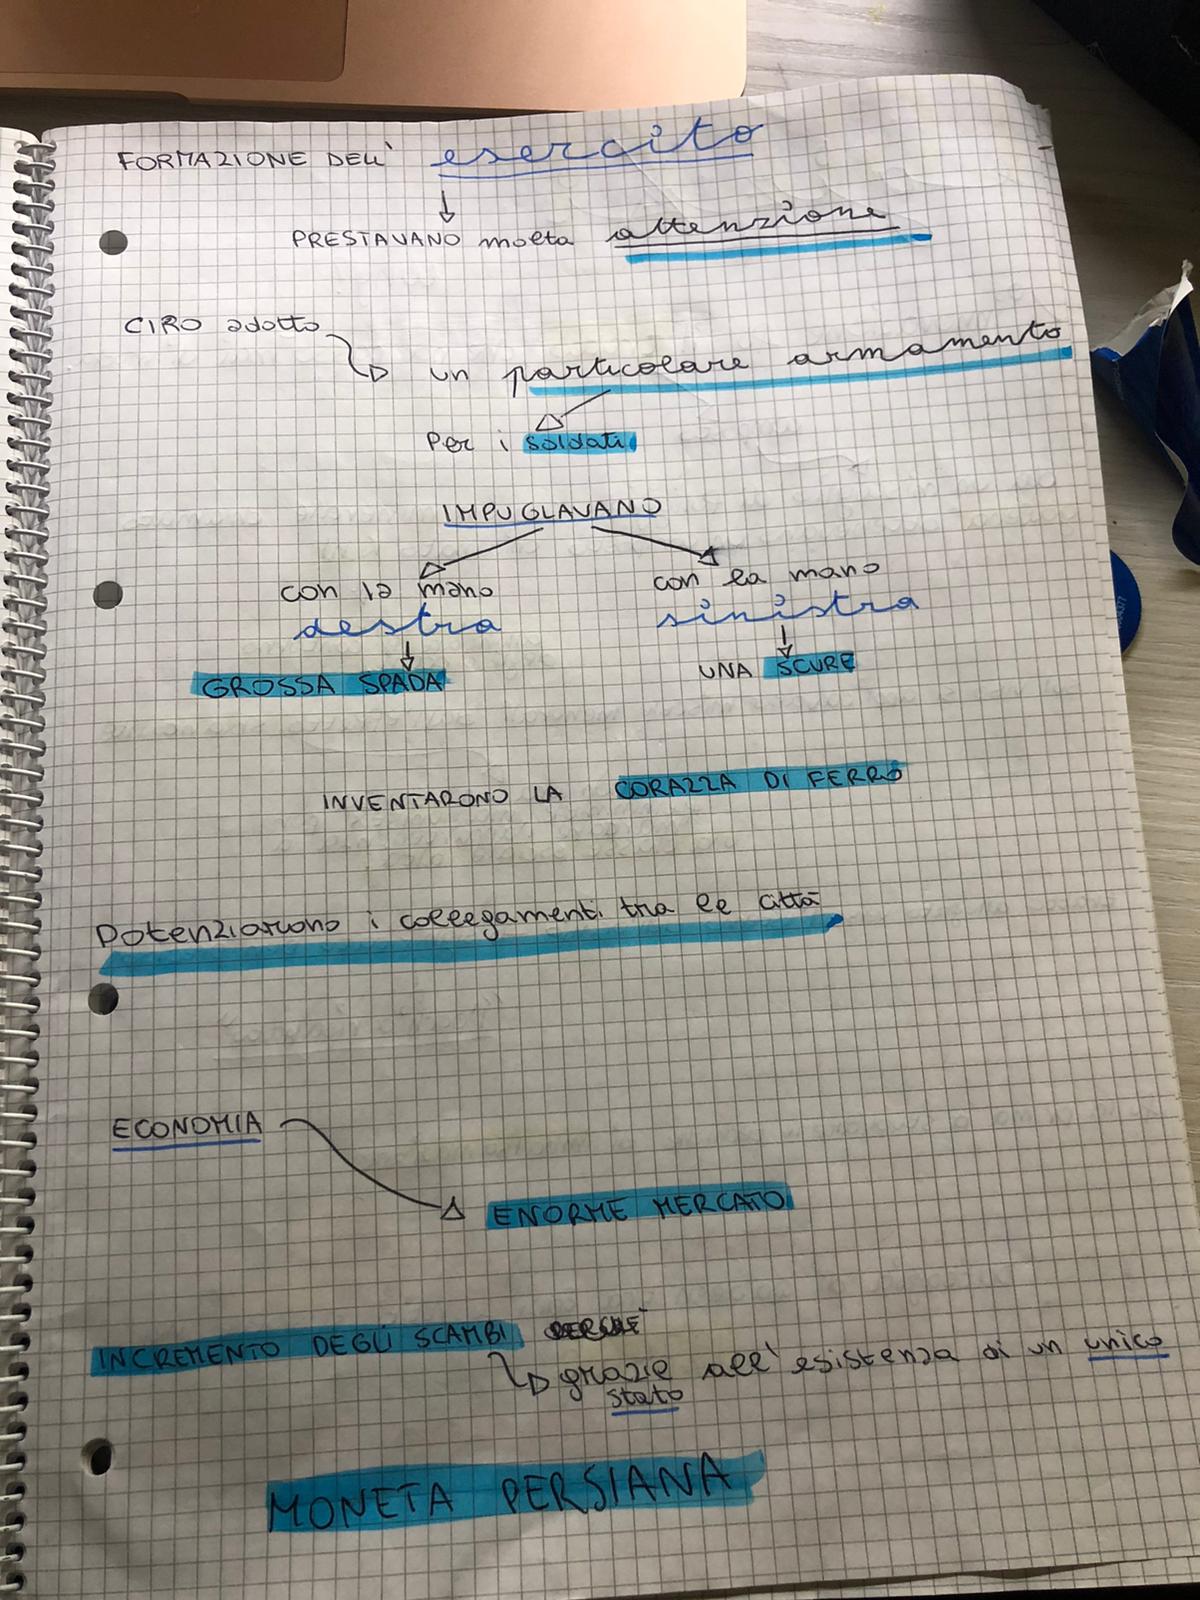 FORMAZIONE DELL' esercito
PRESTAVANO molta attenzione
CIRO adotto
un particolare armamento
Per i soldati
IMPUGLAVANO
con la mano destra
con la mano sinistra
GROSSA SPADA
UNA SCURE
INVENTARONO LA CORAZZA DI FERRO
Potenziarono i collegamenti tra le città
ECONOMIA
ENORME MERCATO
INCREMENTO DEGLI SCAMBI
grazie all'esistenza di un unico
stato
MONETA PERSIANA